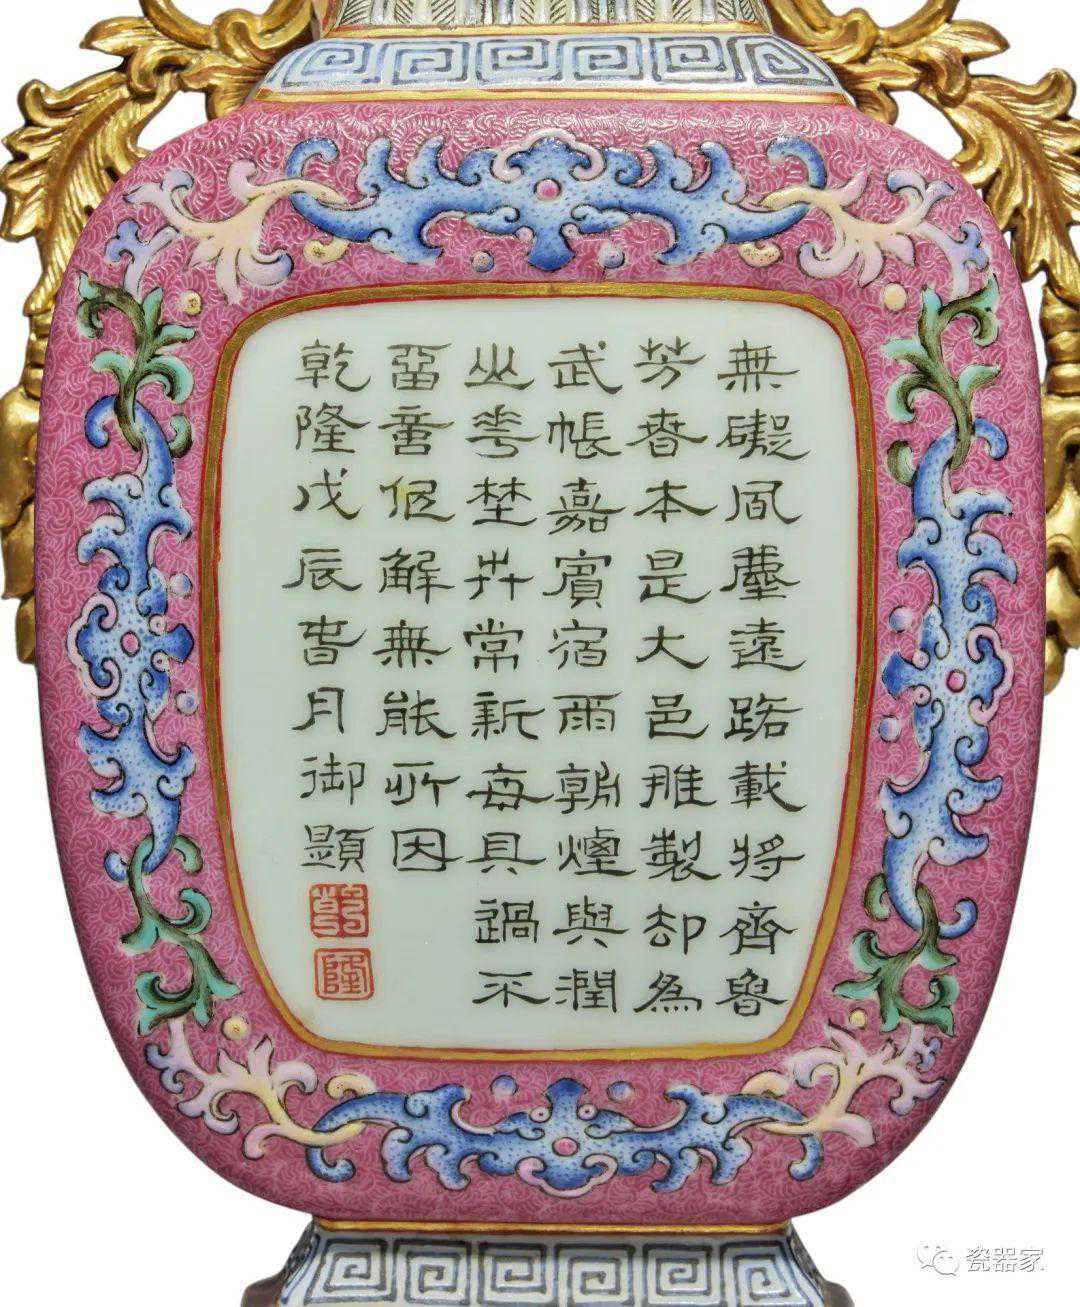 無礙凬塵遠路載將齊魯
芳春本是大邑雅製却為
武帳嘉賓宿雨朝煙與潤
山花埜卉常新每具過不
畱意佀解無能所因
乾隆戊辰春月御題
乾
隆
瓷器家